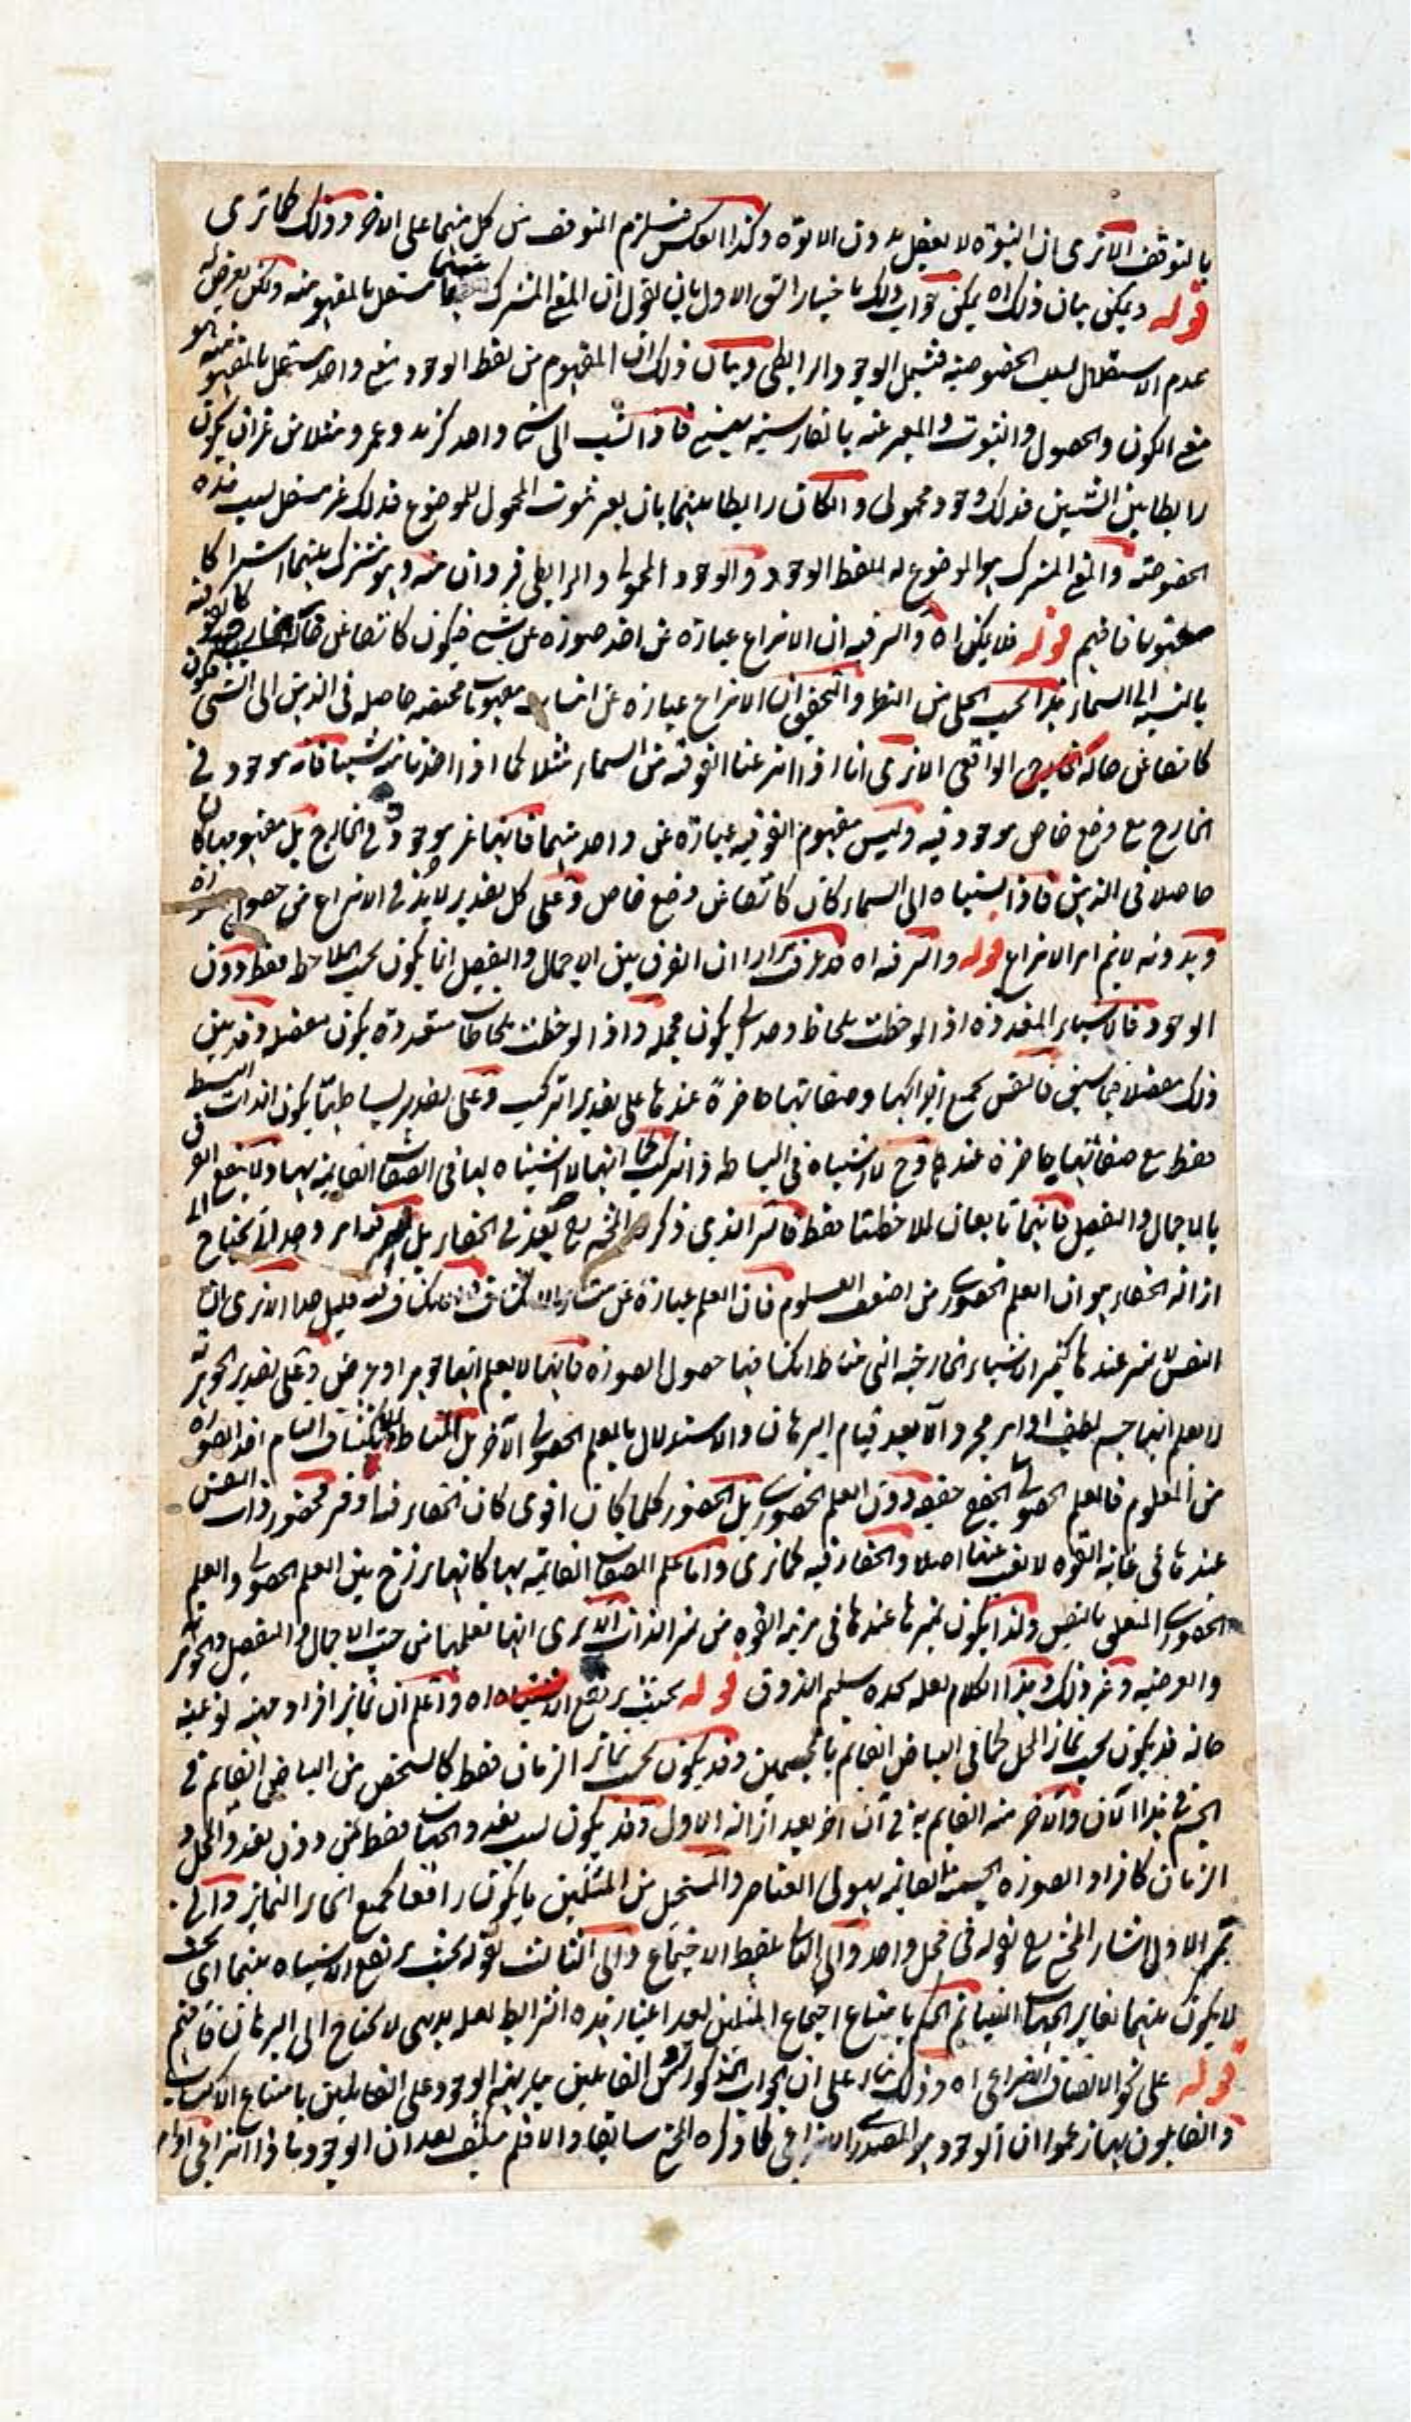 بالتوقف الا ترى ان البنوة لا يعقل بدون الابوة وكذا العكس فيلزم التوقف من كل منهما على الاخر وذلك كما ترى
قوله ويمكن بيان ذلك اه يمكن جواب ذلك باختيار الشق الاول بان يقول ان المعنى المشترك بينهما مستقل بالمفهومية ولكن يعرض له
عدم الاستقلال بسبب الخصوصية فيشمل الوجود الرابطي وبيان ذلك ان المفهوم من لفظ الوجود معنى واحد مستقل بالمفهومية هو
معنى الكون والحصول والثبوت والمعبر عنه بالفارسية فاذا نسب الى شئ واحد كزيد وعمرو مثلا من غير ان يكون
رابطا بين الشيئين فذلك وجود محمولي وان كان رابطا بينهما بان يعبر ثبوت المحمول للموضوع فذلك غير مستقل بسبب هذه
الخصوصية والمعنى المشترك هو الموضوع له للفظ الوجود والوجود المحمولي والرابطي فردان منه وهو مشترك بينهما اشتراكا
معنويا فافهم قوله فلا يمكن اه والسر فيه ان الانتزاع عبارة عن اخذ صورة عن شئ فيكون كاشفا عن حالة كالفوقية
بالنسبة الى السماء هذا بحسب الجلي من النظر والتحقيق ان الانتزاع عبارة عن انتساب مفهومات مختصة حاصلة في الذهن الى الشئ فيكون
كاشفا عن حالة الواقعي الا ترى انا اذا انتزعنا الفوقية من السماء مثلا كما اذا اخذنا منه شيئا فانه موجود في
الخارج مع وضع خاص موجود فيه وليس مفهوم الفوقية عبارة عن واحد منهما فانهما غير موجود في الخارج بل مفهومها كان
حاصلا في الذهن فاذا نسبناه الى السماء كان كاشفا عن وضع خاص وعلى كل تقدير لابد في الانتزاع من حصول
وبدونه لا يتم امر الانتزاع قوله والسر فيه اه قد عرفت مرارا ان الفرق بين الاجمال والتفصيل انما يكون بحسب الملاحظ فقط دون
الوجود فالاشياء المتعددة اذا لوحظت بلحاظ وحداني يكون مجملة واذا لوحظت بلحاظات متعددة يكون مفصلة وقد بين
ذلك مفصلا فيما سبق فالنفس بجميع اجزائها وصفاتها حاضرة عندها على تقدير التركيب وعلى تقدير بساطتها يكون الذات البسيط
فقط مع صفاتها حاضرة عندها وح لا اشتباه في البساطة والتركيب كما انهما لا اشتباه لها في الصفات القائمة بها ولا ينفع الفرق
بالاجمال والتفصيل فانهما تابعان للملاحظتنا فقط فالسر الذي ذكره المحشي بعد في الخفاء بل السر فيه امر وجداني يحتاج الى
ازالة الخفاء هو ان العلم الحضوري من اضعف العلوم فان العلم عبارة عن منشاء الانكشاف والانكشاف فيه قليل جدا الا ترى ان
النفس لا تميز عندها كتميز الاشياء الخارجية التي مناط انكشافها حصول الصورة فانها لا يعلم انها جوهر او عرض وعلى تقدير الجوهرية
لا يعلم انها جسم لطيف او امر مجرد الا بعد قيام البرهان والاستدلال بالعلم الحصولي الآخر بل المناط للانكشاف التام اخذ الصورة
من المعلوم فالعلم الحصولي انجح حقيقة دون العلم الحضوري بل الحضور كلما كان اقوى كان الخفاء فيه اوفر فحضور ذات النفس
عندها في غاية القوة لا تغيب عنها اصلا والخفاء فيه كما ترى واما علم الصفات القائمة بها كانها برزخ بين العلم الحصولي والعلم
الحضوري المتعلق بالنفس ولذا يكون تميزها عندها في مرتبة القوة من تميز الذات الا ترى انها تعلمها من حيث الاجمال والتفصيل والجوهرية
والعرضية وغير ذلك وهذا الكلام لعله يجده سليم الذوق قوله بحيث يرتفع الاثنينية اه واعلم ان تمايز افراد مهية نوعية
فانه قد يكون بحسب تمايز المحل كما في البياض القائم بالجسمين وقد يكون بحسب تمايز الزمان فقط كالشخص من البياض القائم في
الجسم في هذا الآن والآخر منه القائم به في آن آخر بعد ازالة الاول وقد يكون بسبب تعدد الجهات فقط من دون تعدد المحل و
الزمان كافراد الصورة الجسمية القائمة بهيولى العناصر والمستحيل من المثلين ما يكون رافعا لجميع انحاء التمايز والى
تميز الاول اشار المحشي بقوله في محل واحد والى الثاني بلفظ الاجتماع والى الثالث بقوله بحيث يرتفع الامتياز بينهما اى بحيث
لا يكون بينهما تغاير الجهات ايضا ثم الحكم بامتناع اجتماع المثلين بعد اعتبار هذه الشرائط لعله بديهي لا يحتاج الى البرهان فافهم
قوله على نحو الاتصاف الانتزاعي اه وذلك بناء على ان الجواب المذكور من القائلين بعينية الوجود على القائلين بامتناع الاكتساب
والقائلون بها زعموا ان الوجود هو المصدري الانتزاعي كما ذكره المحشي سابقا والا فلم يثبت بعد ان الوجود ماذا انتزاعي او